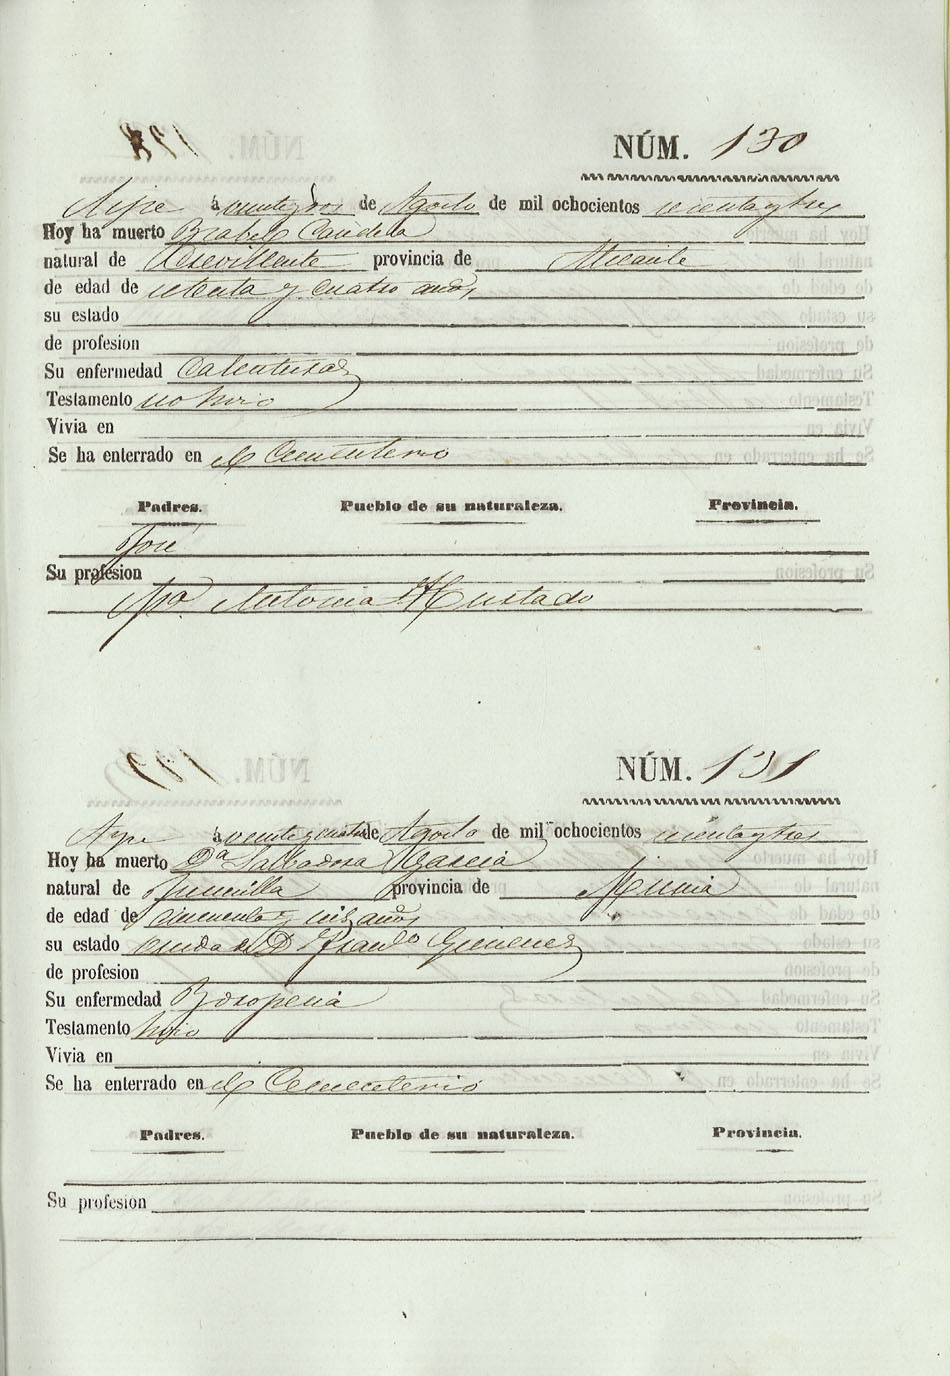 NÚM. 130
Aspe á veinte y dos de Agosto de mil ochocientos sesenta y tres
Hoy ha muerto Isabel Candela
natural de Crevillente provincia de Alicante
de edad de setenta y cuatro años
su estado
de profesion
Su enfermedad Calenturas
Testamento no hizo
Vivia en
Se ha enterrado en el Cementerio
Padres. Pueblo de su naturaleza. Provincia.
José
Su profesion
Mª Antonia Hurtado
NÚM. 131
Aspe á veinte y cuatro de Agosto de mil ochocientos sesenta y tres
Hoy ha muerto Dª Salvadora Garcia
natural de Jumilla provincia de Murcia
de edad de cincuenta y seis años
su estado viuda de D. Franco Gimenez
de profesion
Su enfermedad
Testamento hizo
Vivia en
Se ha enterrado en el Cementerio
Padres. Pueblo de su naturaleza. Provincia.
Su profesion